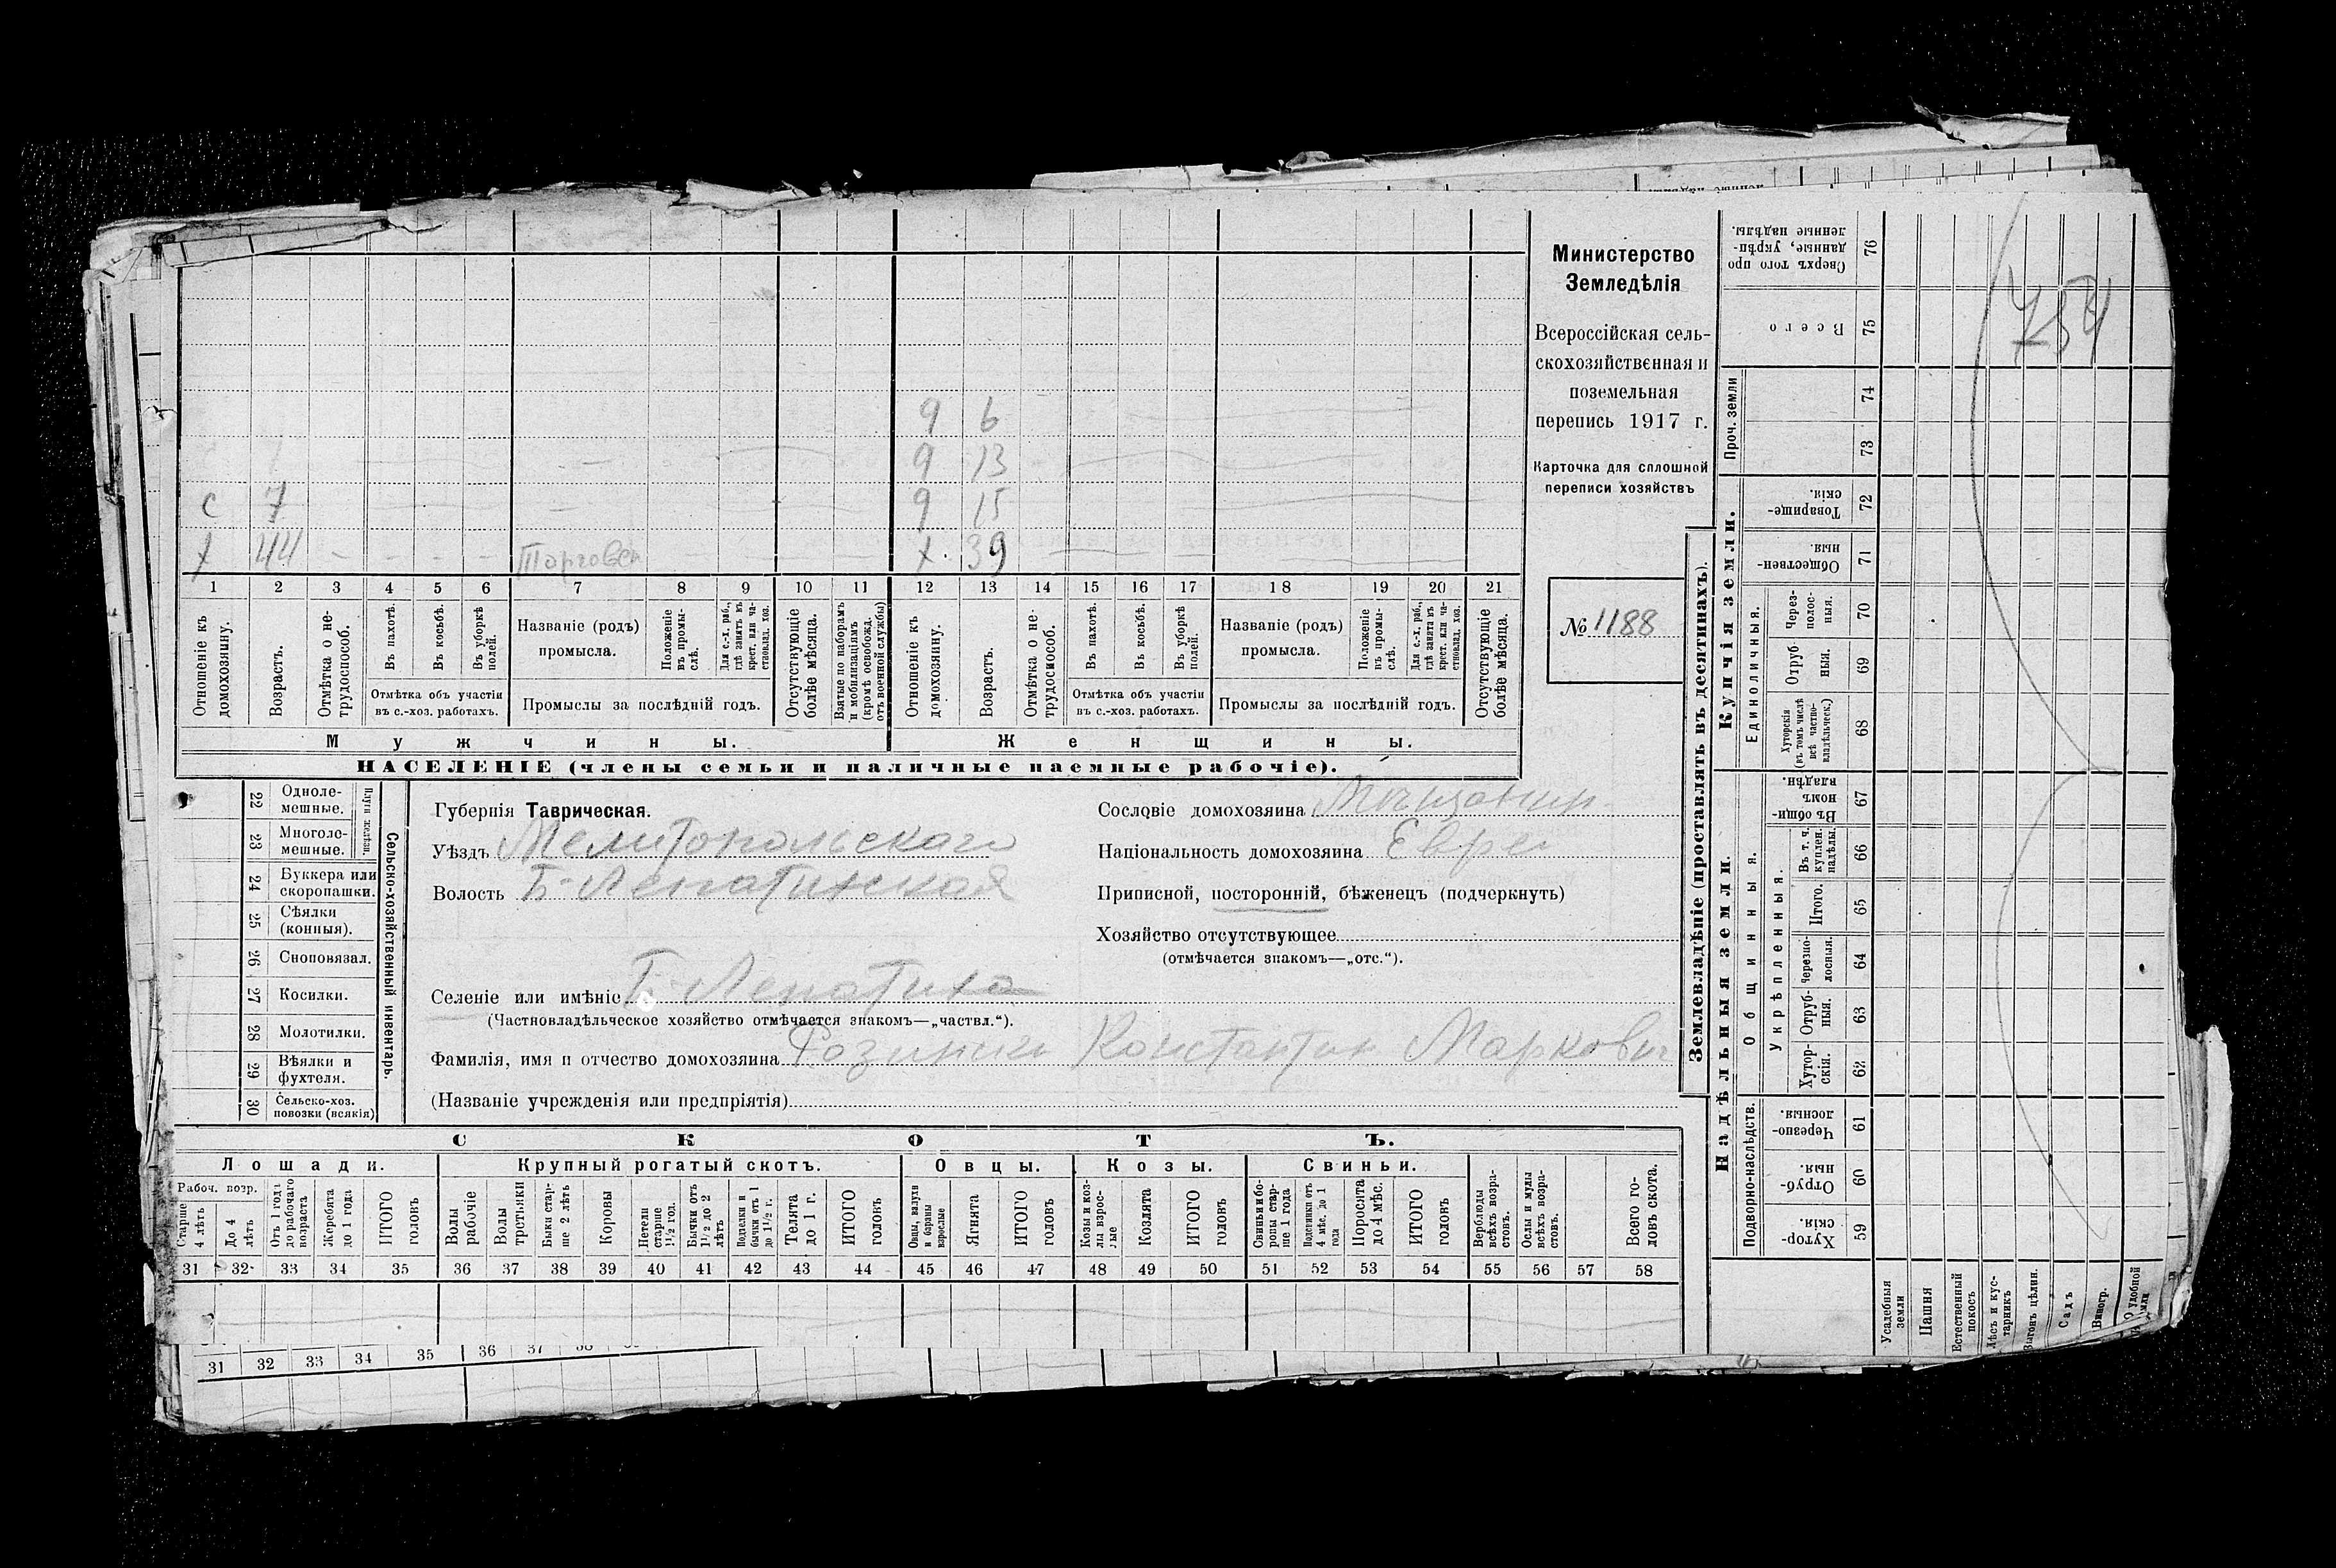 9 6
9 13
с 7 9 15
х 44 Торговец х. 39
1 2 3 4 5 6 7 8 9 10 11 12 13 14 15 16 17 18 19 20 21
Отношеніе къ домохозяину.
Возрастъ.
Отмѣтка о нетрудоспособ.
Въ пахотѣ.
Въ косьбѣ.
Въ уборкѣ полей.
Отмѣтка объ участіи
въ с.-хоз. работахъ.
Названіе (родъ)
промысла.
Положеніе въ промыслѣ.
Для с.-х. раб., гдѣ занятъ въ крест. или частновлад. хоз.
Промыслы за послѣдній годъ.
Отсутствующіе болѣе мѣсяца.
Взятые по наборамъ и мобилизаціямъ (кромѣ освобожд. отъ военной службы)
Отношеніе къ домохозяину.
Возрастъ.
Отмѣтка о нетрудоспособ.
Въ пахотѣ.
Въ косьбѣ.
Въ уборкѣ полей.
Отмѣтка объ участіи
въ с.-хоз. работахъ.
Названіе (родъ)
промысла.
Положеніе въ промыслѣ.
Для с.-х. раб., гдѣ занята въ крест. или частновлад. хоз.
Промыслы за послѣдній годъ.
Отсутствующіе болѣе мѣсяца.
Мужчины.
Женщины.
НАСЕЛЕНІЕ (члены семьи и наличные наемные рабочіе).
Министерство
Земледѣлія
Всероссійская сель-
скохозяйственная и
поземельная
перепись 1917 г.
Карточка для сплошной
переписи хозяйствъ
№ 1188
22 Одноле-
мешные.
23 Многоле-
мешные.
Плуги желѣзн.
24 Буккера или
скоропашки.
25 Сѣялки
(конныя).
26 Сноповязал.
27 Косилки.
28 Молотилки.
29 Вѣялки и
фухтеля.
30 Сельско-хоз.
повозки (всякія)
Сельско-хозяйственный инвентарь.
Губернія Таврическая.
Уѣздъ Мелитопольскаго
Волость Б-Лепатинская
Селеніе или имѣніе Б-Лепатиха
(Частновладѣльческое хозяйство отмѣчается знакомъ—„частвл.“).
Фамилія, имя и отчество домохозяина Розински Константин Маркович
(Названіе учрежденія или предпріятія)
Сословіе домохозяина Мѣщанин
Національность домохозяина Еврей
Приписной, посторонній, бѣженецъ (подчеркнуть)
Хозяйство отсутствующее
(отмѣчается знакомъ—„отс.“).
СКОТЪ.
Лошади. Крупный рогатый скотъ. Овцы. Козы. Свиньи.
Рабоч. возр.
Старше 4 лѣтъ
До 4 лѣтъ
Отъ 1 года до рабочаго возраста
Жеребята до 1 года
ИТОГО головъ
Волы рабочіе
Волы третьяки
Быки старше 2 лѣтъ
Коровы
Нетели старше 1½ год.
Бычки отъ 1½ до 2 лѣтъ
Подтелки и бычки отъ 1 до 1½ г.
Телята до 1 г.
ИТОГО головъ
Овцы, валухи и бараны взрослые
Ягнята
ИТОГО головъ
Козы и козлы взрослые
Козлята
ИТОГО головъ
Свиньи и боровы старше 1 года
Подсвинки отъ 4 мѣс. до 1 года
Поросята до 4 мѣс.
ИТОГО головъ
Верблюды всѣхъ возрастовъ.
Ослы и мулы всѣхъ возрастовъ.
Всего головъ скота.
31 32 33 34 35 36 37 38 39 40 41 42 43 44 45 46 47 48 49 50 51 52 53 54 55 56 57 58
31 32 33 34 35 36 37
Землевладѣніе (проставлять въ десятинахъ).
Надѣльныя земли.
Купчія земли.
Проч. земли
Подворно-наслѣдств.
Общинныя.
Укрѣпленныя.
Единоличныя.
Сверхъ того проданные, укрѣпленные надѣлы. 76
Всего 75
74
73
Товарищескія. 72
Общественныя. 71
Черезполосныя. 70
Отрубныя. 69
Хуторскія (въ томъ числѣ всѣ частновладѣльческ.) 68
Въ общинномъ владѣн. 67
Въ т. ч. куплен. надѣлы. 66
Итого. 65
Черезполосныя. 64
Отрубныя. 63
Хуторскія. 62
Черезполосныя. 61
Отрубныя. 60
Хуторскія. 59
Усадебныя земли
Пашня
Естественный покосъ
Лѣсъ и кустарникъ
Выгонъ цѣлин.
Садъ
Виногр.
удобной